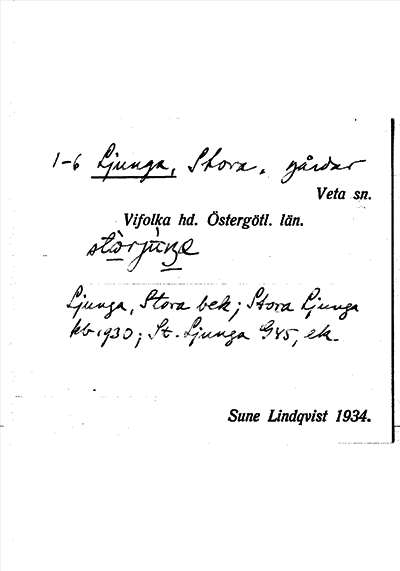 1-6 Ljunga, Stora, gårdar
Veta sn.
Vifolka hd. Östergötl. län.
Ljunga, Stora bek; Stora Ljunga
kb 1930; St. Ljunga G45, ek.
Sune Lindqvist 1934.